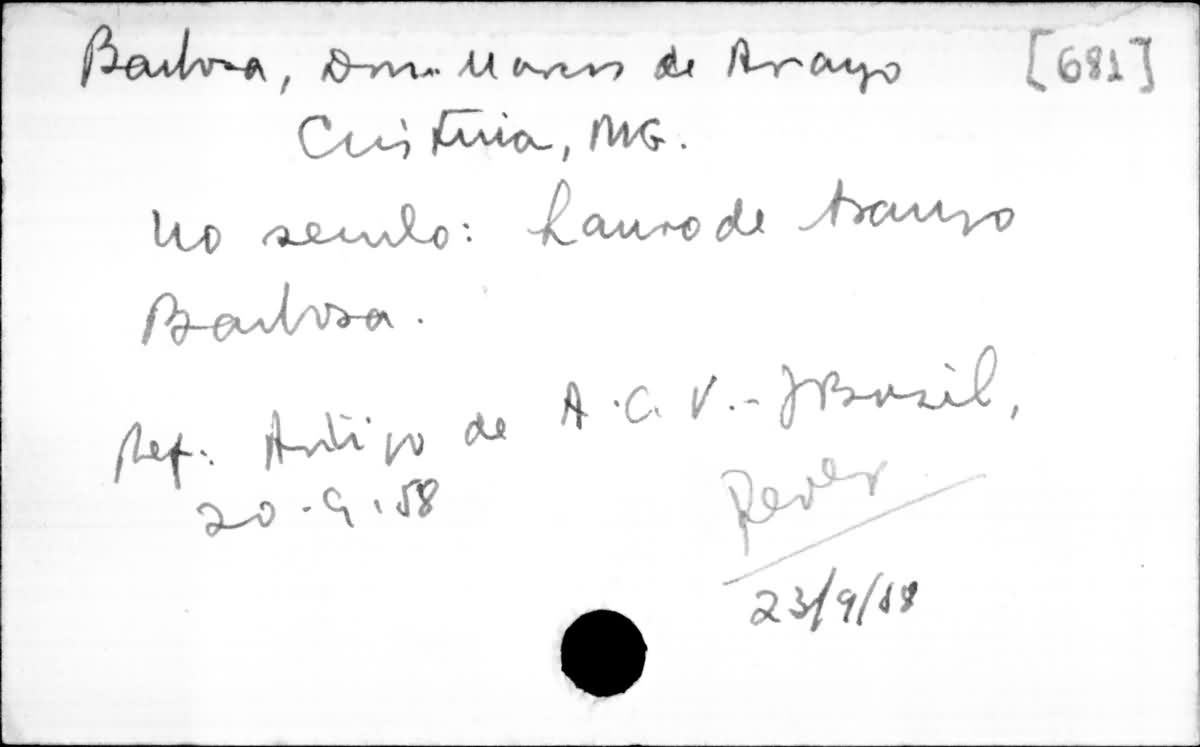 Barbosa, Dom Marcos de Araujo [681]
Cristina, MG.
No seculo: Lauro de Araujo
Barbosa.
Ref.: Artigo de A.C.V. - JBrasil,
20.9.58
Rever
23/9/58